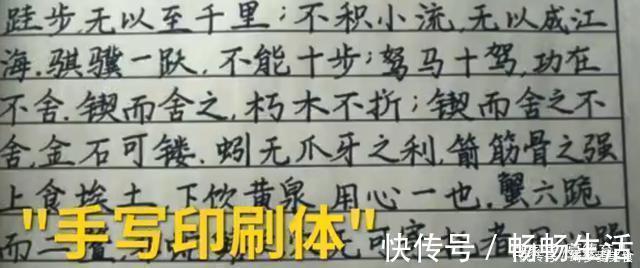 跬步,无以至千里;不积小流,无以成江
海.骐骥一跃,不能十步;驽马十驾,功在
不舍.锲而舍之,朽木不折;锲而舍之不
舍,金石可镂.蚓无爪牙之利,箭筋骨之强
上食埃土 下饮黄泉 用心一也.蟹六跪
而二
"手写印刷体"
快传号 / 畅畅生活